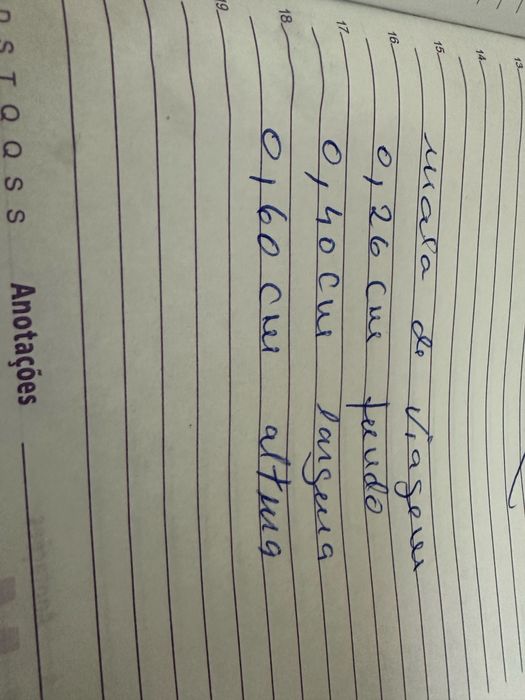 13.
14.
15.
mala de viagem
16.
0,26 cm fundo
17.
0,40 cm largura
18.
0,60 cm altura
19.
D S T Q Q S S Anotações